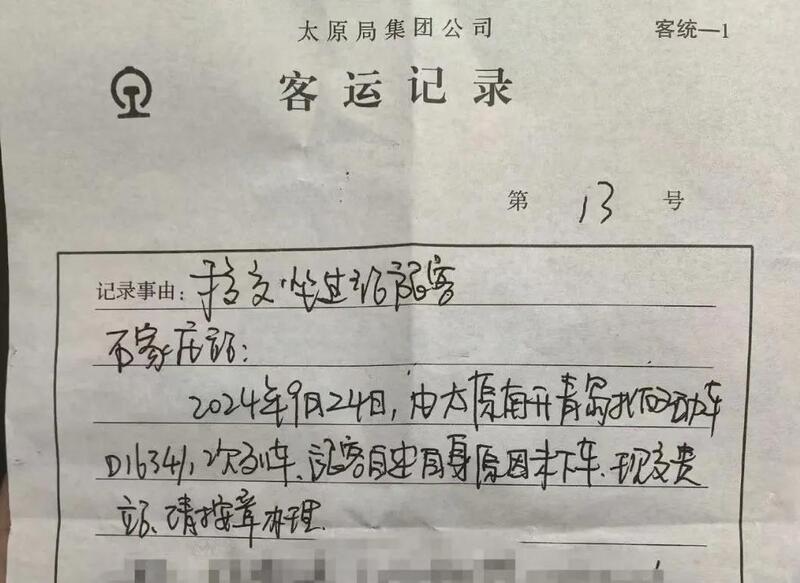 太原局集团公司 客统—1
客运记录
第 13 号
记录事由:移交坐过站旅客
石家庄站:
2024年9月24日,由太原南开青岛北的动车
D1634/1次列车、旅客自述自身原因未下车、现交贵
站、请按章办理